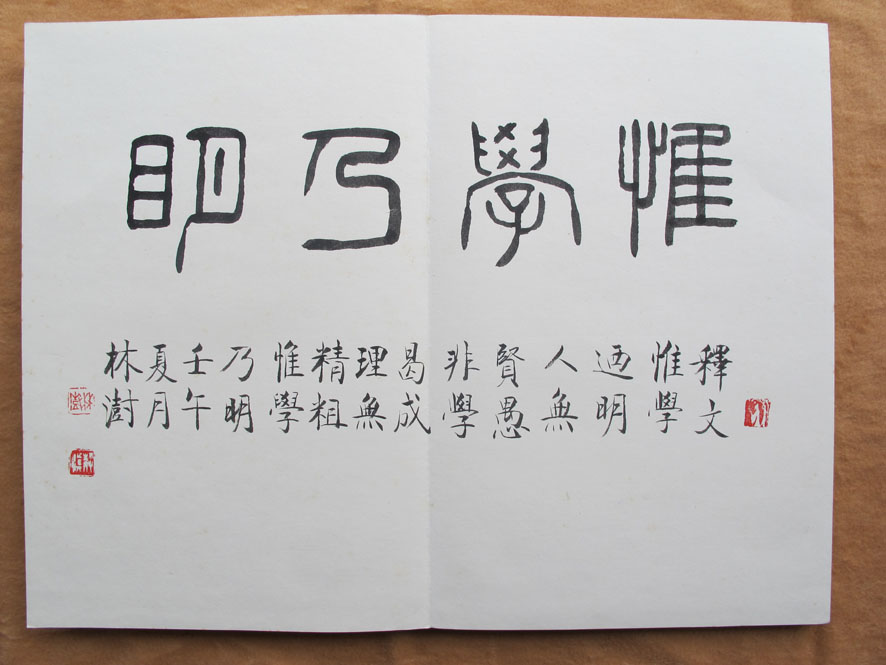 惟學乃眀
釋文
惟學
迺明
人無
賢愚
非學
曷成
理無
精粗
惟學
乃明
壬午
夏月
林澍